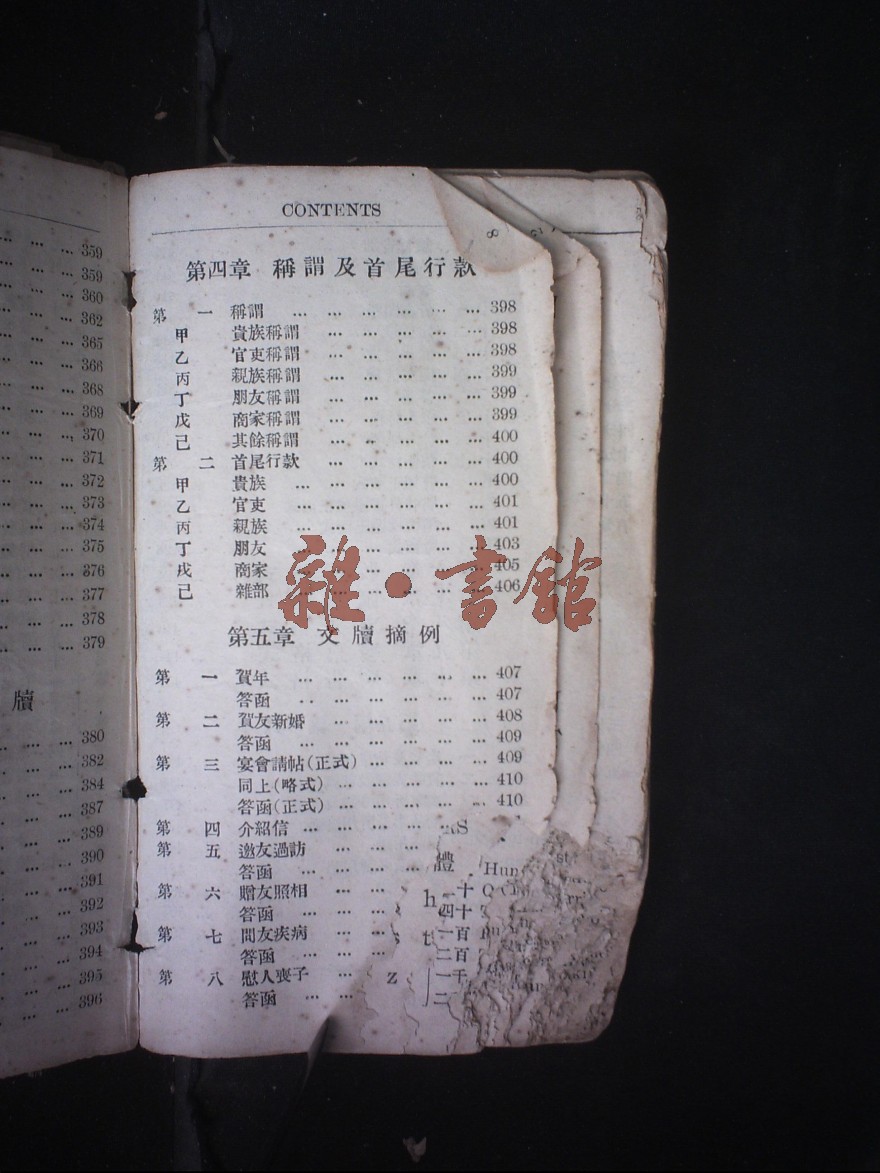 359
359
360
362
365
366
368
369
370
371
372
373
374
375
376
377
378
379
牘
380
382
384
387
389
390
391
392
393
394
395
396
CONTENTS
第四章 稱謂及首尾行款
第一 稱謂 ... ... ... ... ... ... 398
甲 貴族稱謂 ... ... ... ... ... 398
乙 官吏稱謂 ... ... ... ... ... 398
丙 親族稱謂 ... ... ... ... ... 399
丁 朋友稱謂 ... ... ... ... ... 399
戊 商家稱謂 ... ... ... ... ... 399
己 其餘稱謂 ... ... ... ... ... 400
第二 首尾行款 ... ... ... ... ... 400
甲 貴族 ... ... ... ... ... ... 400
乙 官吏 ... ... ... ... ... ... 401
丙 親族 ... ... ... ... ... ... 401
丁 朋友 ... ... ... ... ... ... 403
戊 商家 ... ... ... ... ... ... 405
己 雜部 ... ... ... ... ... ... 406
雜·書館
第五章 文牘摘例
第一 賀年 ... ... ... ... ... ... 407
答函 ... ... ... ... ... ... 407
第二 賀友新婚 ... ... ... ... ... 408
答函 ... ... ... ... ... ... 409
第三 宴會請帖(正式) ... ... ... ... 409
同上(略式) ... ... ... ... ... 410
答函(正式) ... ... ... ... ... 410
第四 介紹信 ... ... ... ...
第五 邀友過訪 ... ... ...
答函 ... ... ... ...
第六 贈友照相 ... ...
答函 ... ... ...
第七 問友疾病 ... ...
答函 ... ... ...
第八 慰人喪子 ...
答函 ... ...
禮
Hun
h
t
z
十
四十
一百
二百
一千
二